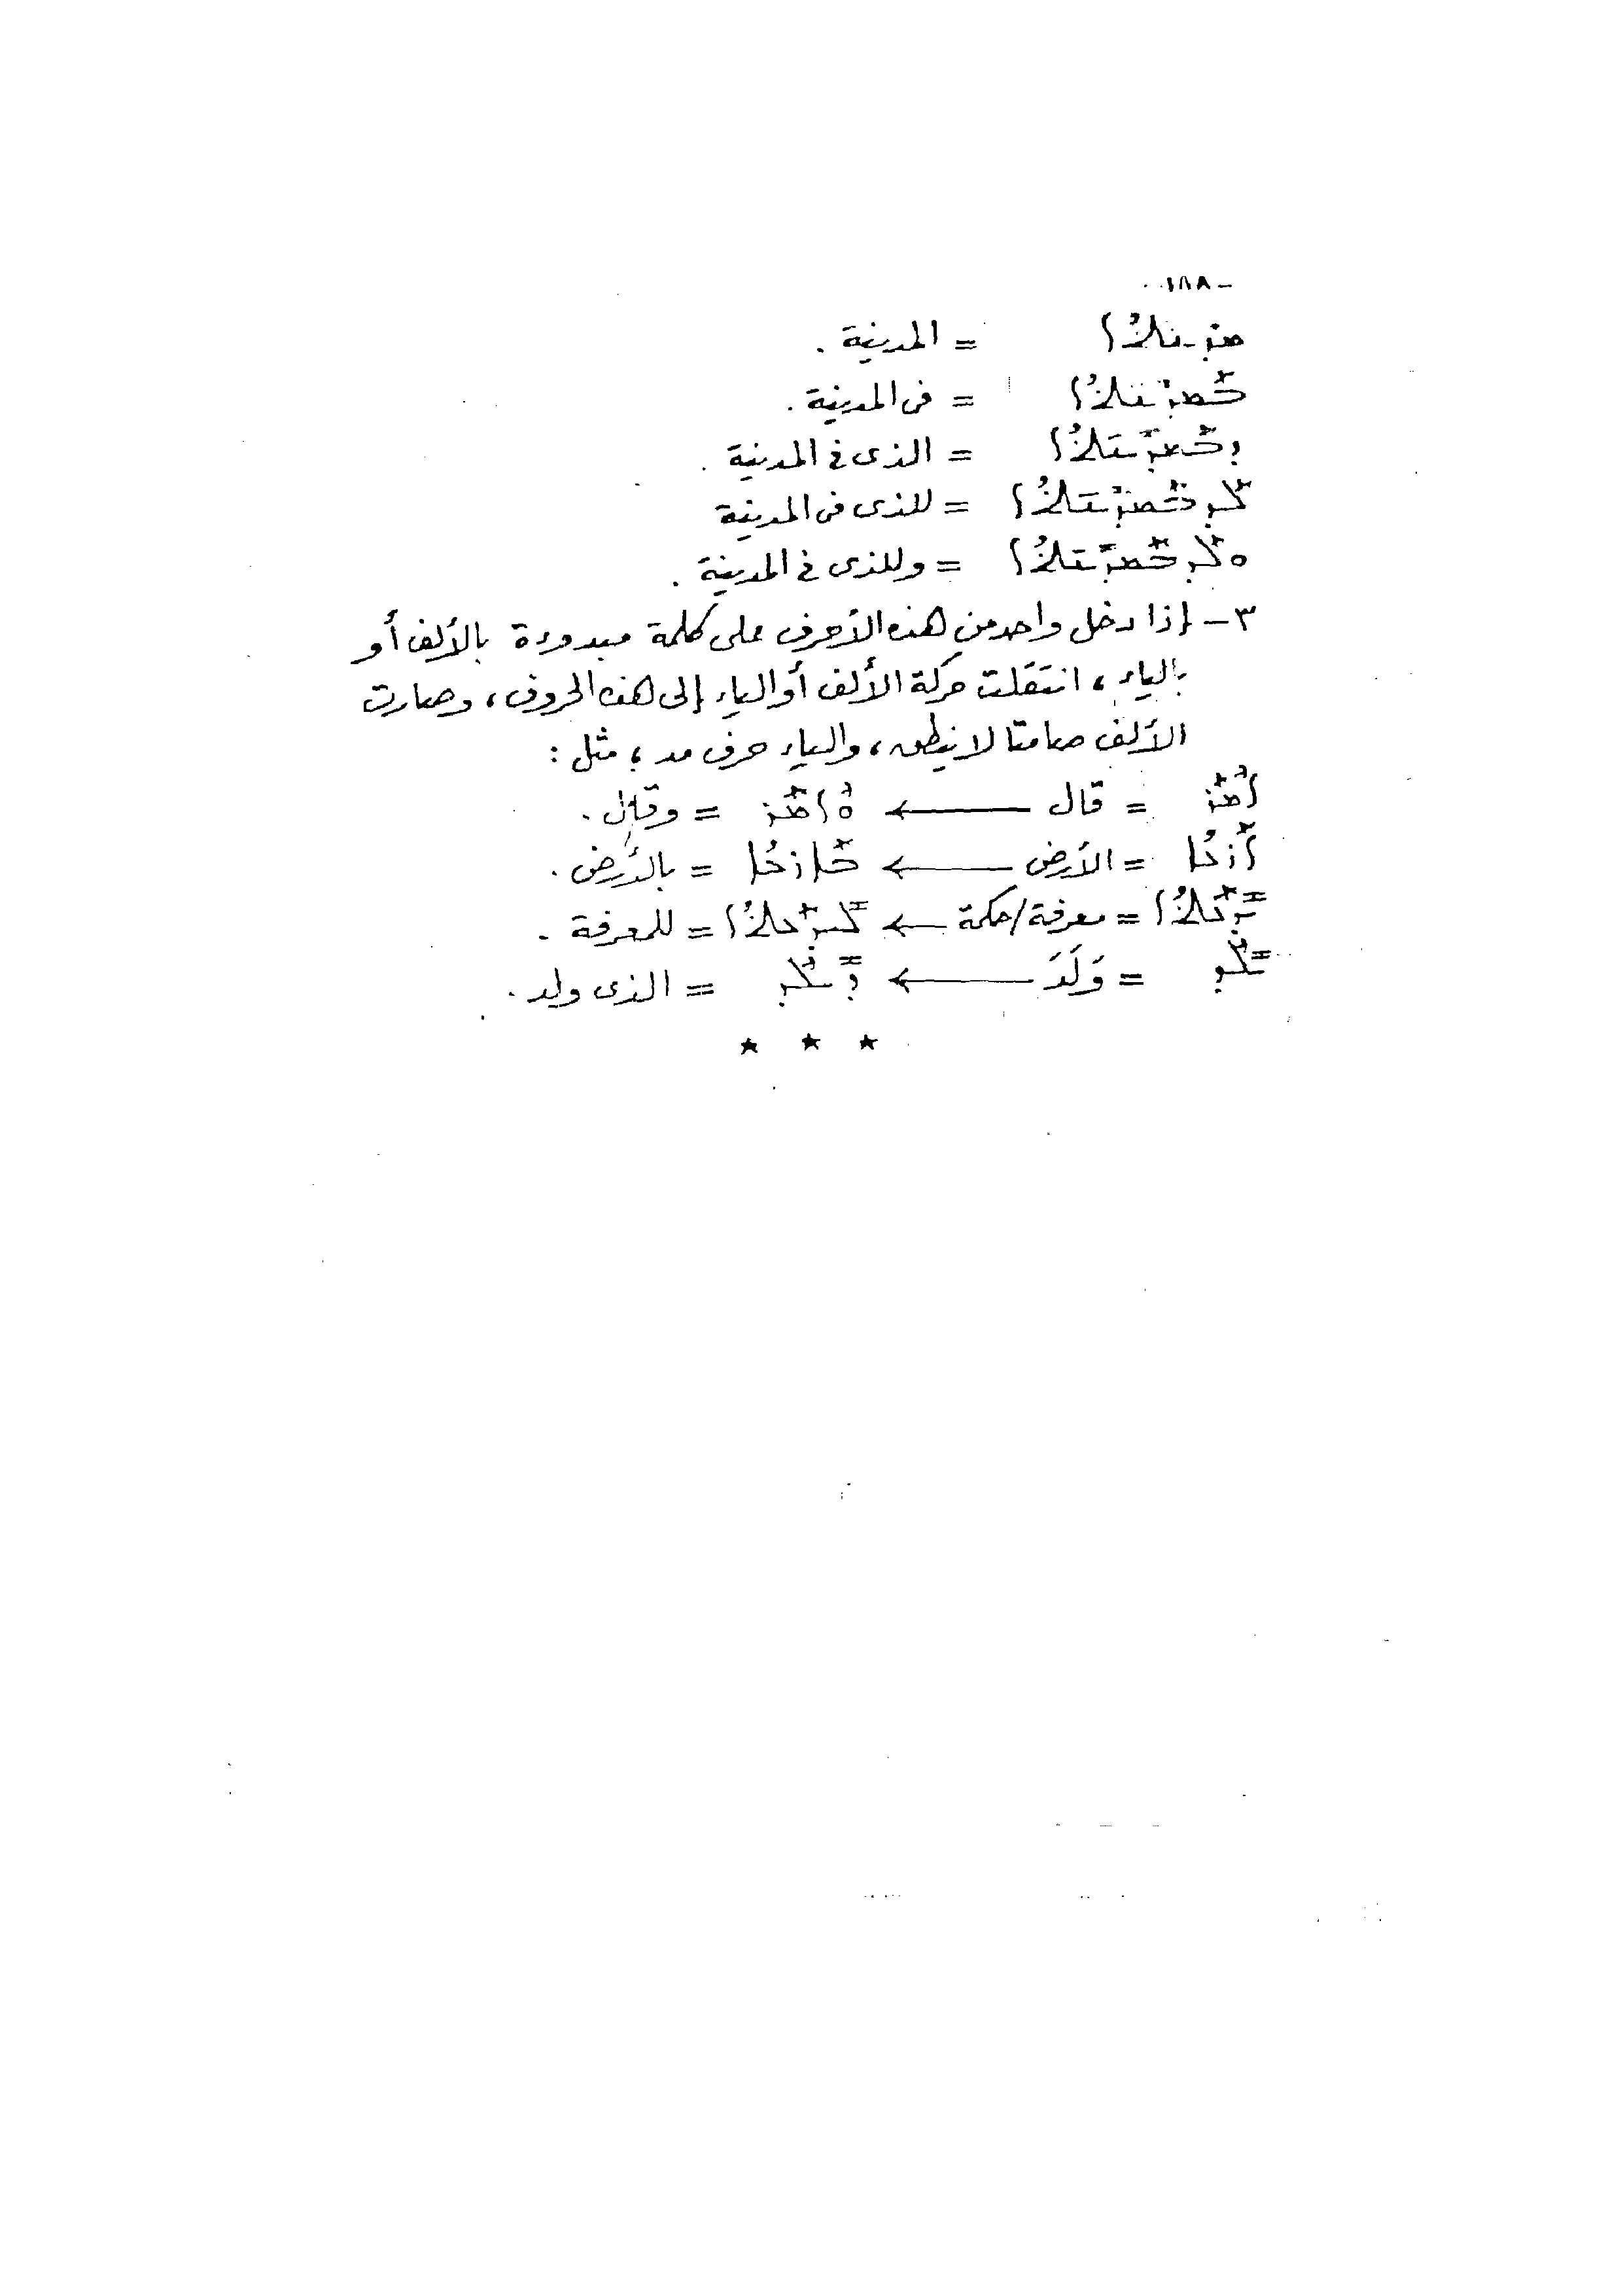 - ١٨٨
ܡܕܝܢܬܐ = المدينة .
ܒܡܕܝܢܬܐ = في المدينة .
ܕܒܡܕܝܢܬܐ = الذى في المدينة .
ܠܕܒܡܕܝܢܬܐ = للذى في المدينة
ܘܠܕܒܡܕܝܢܬܐ = وللذى في المدينة .
٣ - إذا دخل واحد من هذه الأحرف على كلمة مبدوءة بالألف أو
بالياء ، انتقلت حركة الألف أو الياء إلى هذه الحروف ، وصارت
الألف صامتا لا ينطق ، والياء حرف مد ، مثل :
ܐܡܪ = قال ← ܘܐܡܪ = وقال .
ܐܪܥܐ = الأرض ← ܒܐܪܥܐ = بالأرض .
ܝܕܥܬܐ = معرفة/حكمة ← ܠܝܕܥܬܐ = للمعرفة .
ܝܠܕ = وَلَدَ ← ܕܝܠܕ = الذى ولد .
★ ★ ★